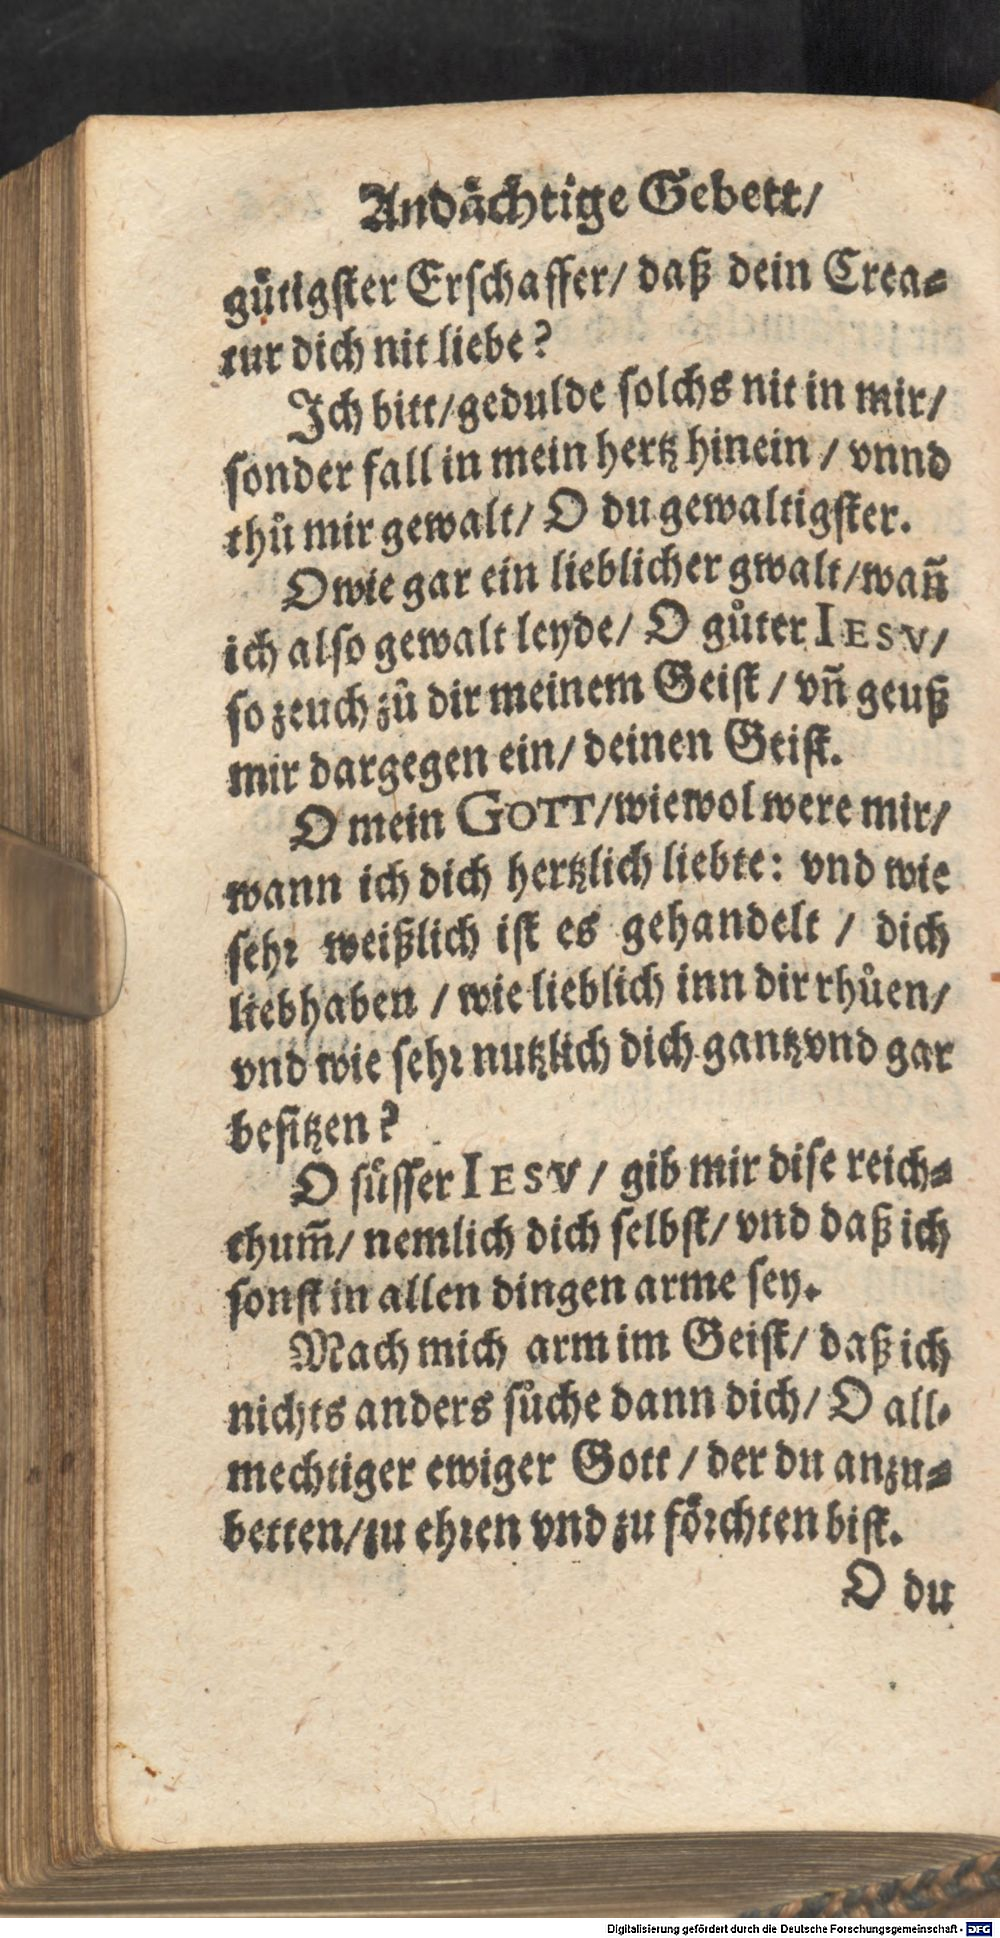 Andächtige Gebett/
gütigster Erschaffer/ daß dein Crea⸗
tur dich nit liebe?
Ich bitt/gedulde solchs nit in mir/
sonder fall in mein hertz hinein / vnnd
thů mir gewalt/ O du gewaltigster.
O wie gar ein lieblicher gwalt/wañ
ich also gewalt leyde/ O gůter IESV/
so zeuch zů dir meinem Geist / vñ geuß
mir dargegen ein/ deinen Geist.
O mein GOTT/wiewol were mir/
wann ich dich hertzlich liebte: vnd wie
sehr weißlich ist es gehandelt / dich
liebhaben / wie lieblich inn dir rhůen/
vnd wie sehr nutzlich dich gantz vnd gar
besitzen?
O süsser IESV / gib mir dise reich⸗
thum̃/ nemlich dich selbst/ vnd daß ich
sonst in allen dingen arme sey.
Mach mich arm im Geist/ daß ich
nichts anders sůche dann dich/ O all⸗
mechtiger ewiger Gott / der du anzu⸗
betten/zu ehren vnd zu förchten bist.
O du
Digitalisierung gefördert durch die Deutsche Forschungsgemeinschaft - DFG